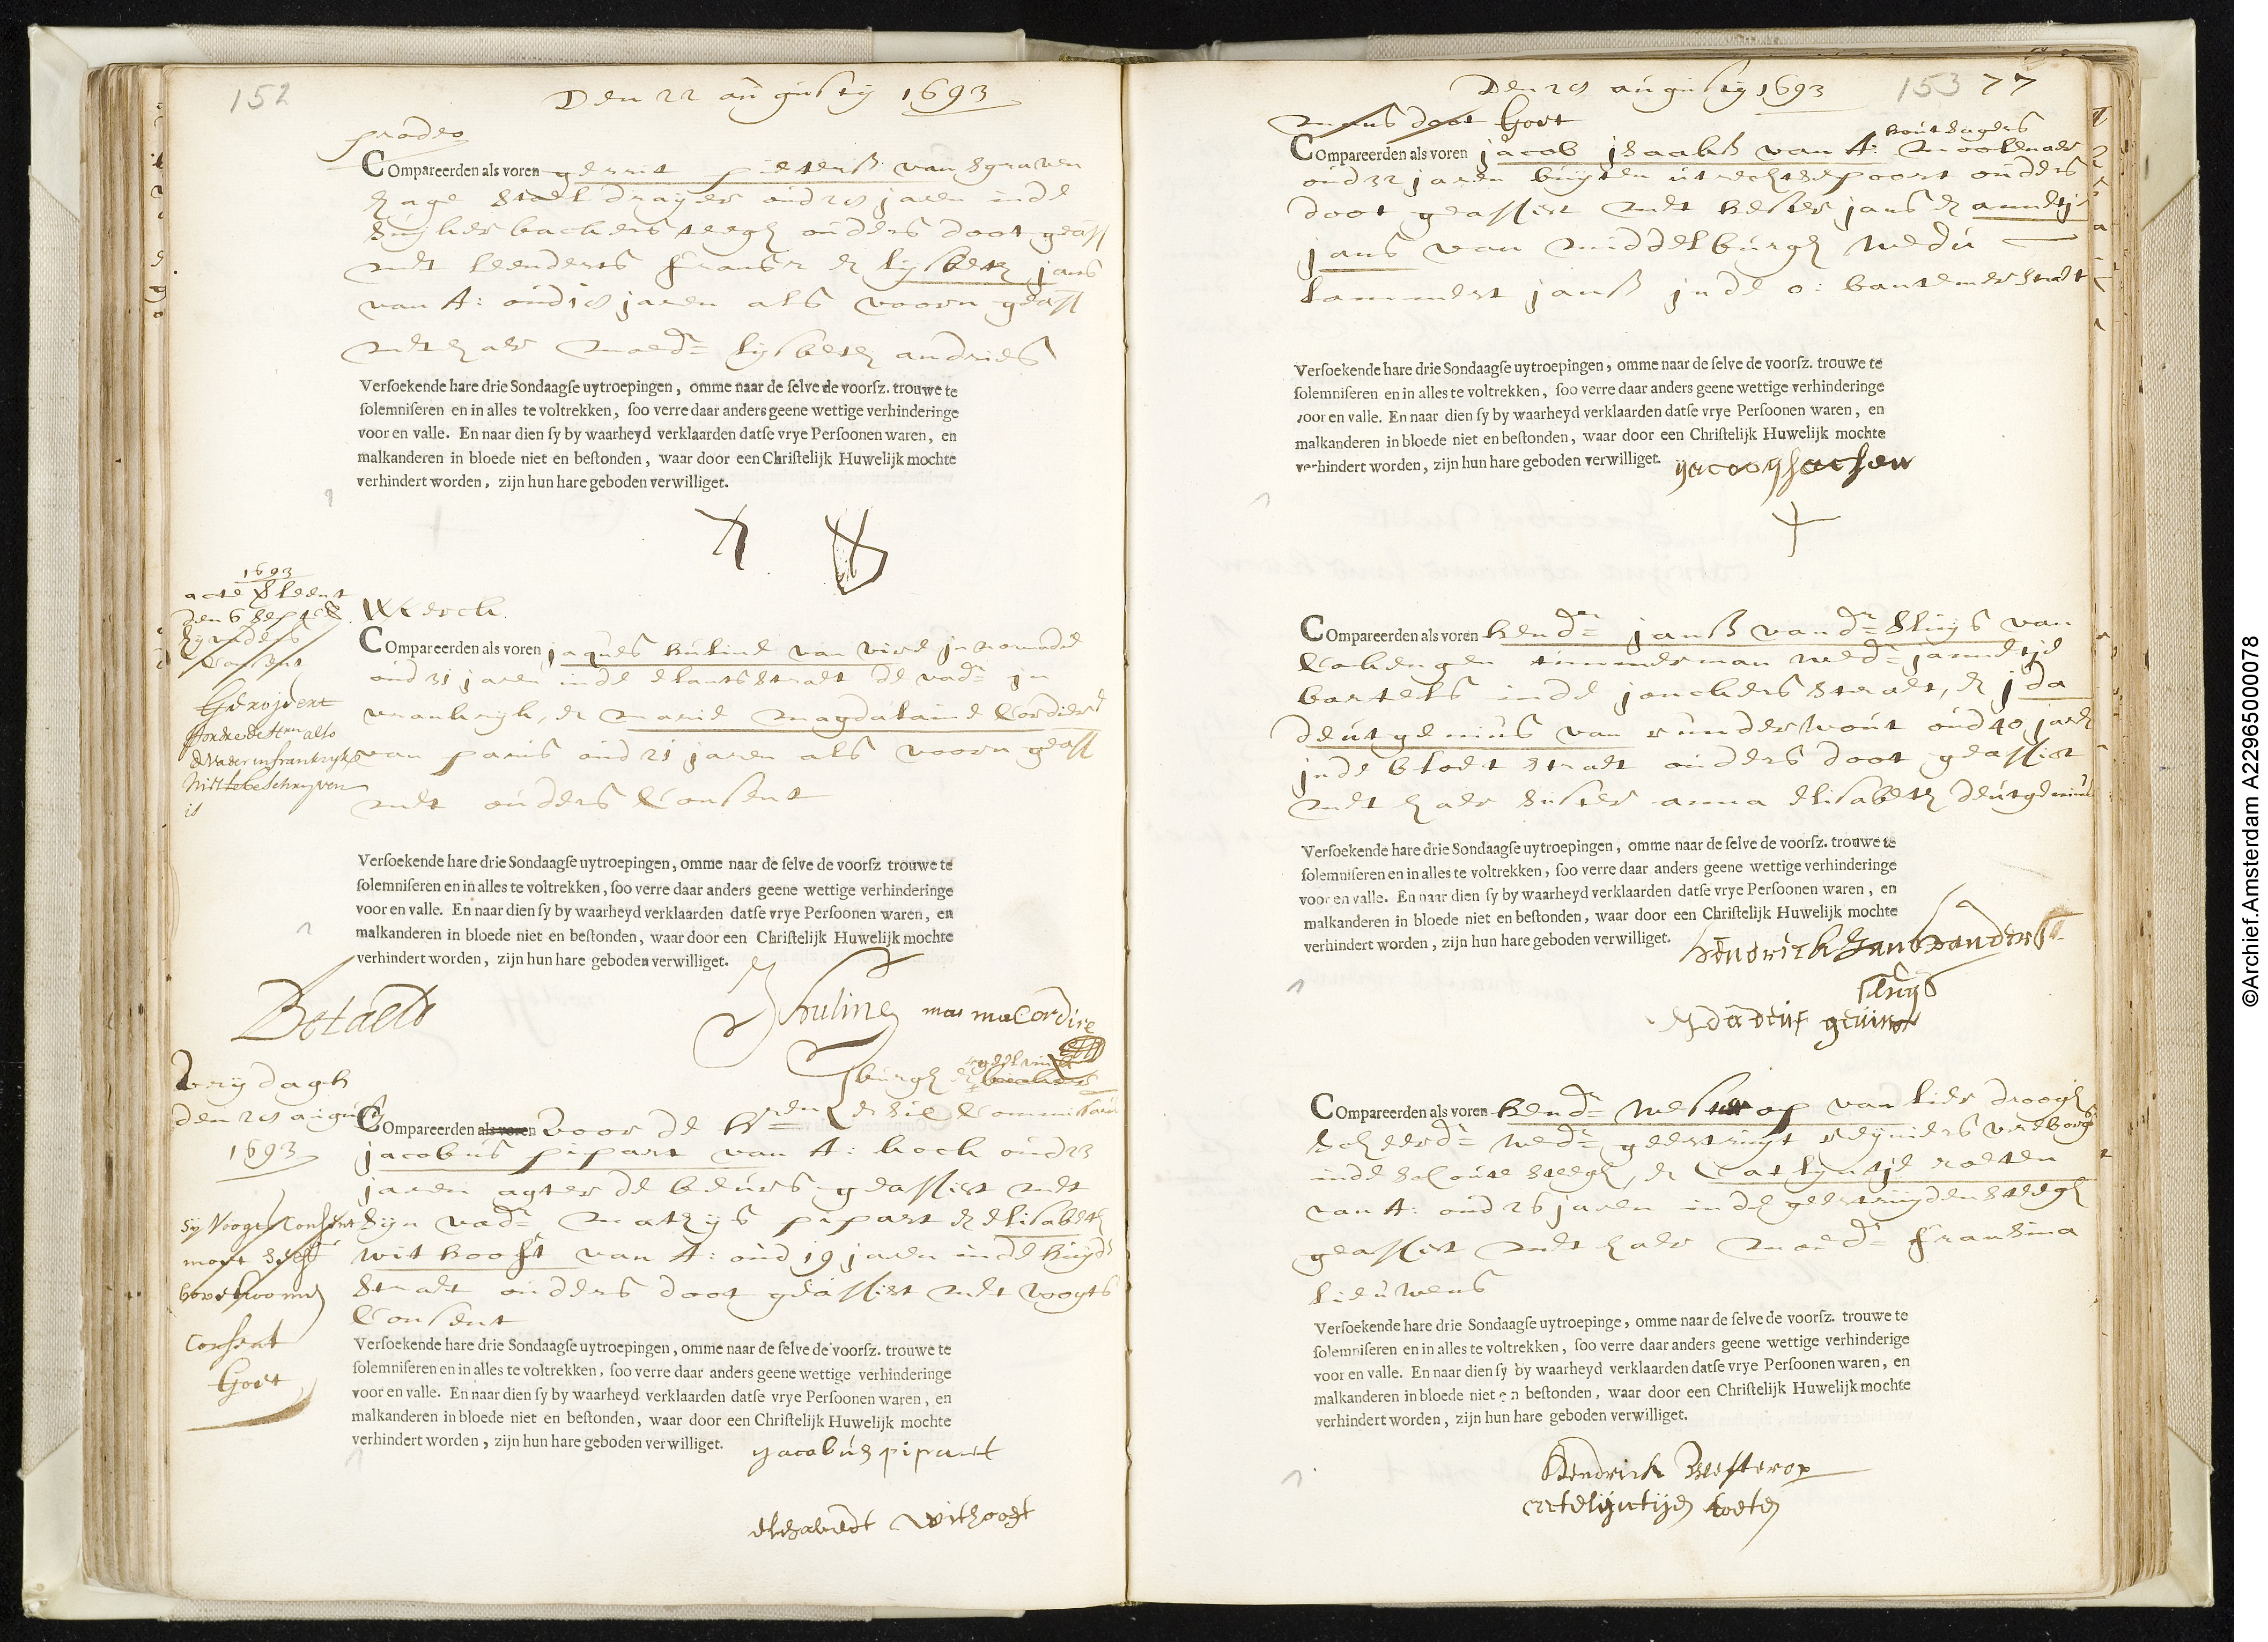 152
Den 22 augustij 1693
prodeo
Compareerden als voren gerrit pieterß van sgraven
hage stoel drayer oud 28 jaren inde
suijker backers steegh ouders doot geass
met leenderts fransz & lijsbeth jans
van A: oud 18 jaren als voorn geass
met haer moedr lijsbeth andries
Versoekende hare drie Sondaagse uytroepingen, omme naar de selve de voorsz. trouwe te
solemniseren en in alles te voltrekken, soo verre daar anders geene wettige verhinderinge
voor en valle. En naar dien sy by waarheyd verklaarden datse vrye Persoonen waren, en
malkanderen in bloede niet en bestonden, waar door een Christelijk Huwelijk mochte
verhindert worden, zijn hun hare geboden verwilliget.
1693
acte verleent
den 6 septemb
hij vaders
Consent
Geroijeert
de Vader in frankryk
Niet te beschryven
is
Kerck
Compareerden als voren jaques huline van vire in normadie
oud 31 jaren inde elantsstraet de vadr in
vrankrijk, & marie magdalaine Cordiere
van paris oud 21 jaren als voorn geass
met ouders Consent
Versoekende hare drie Sondaagse uytroepingen, omme naar de selve de voorsz trouwe te
solemniseren en in alles te voltrekken, soo verre daar anders geene wettige verhinderinge
voor en valle. En naar dien sy by waarheyd verklaarden datse vrye Persoonen waren, en
malkanderen in bloede niet en bestonden, waar door een Christelijk Huwelijk mochte
verhindert worden, zijn hun hare geboden verwilliget.
Betaelt
J huline mar ma Cordire
Vrijdagh
den 28 augustij
1693
sy Voogts Consent
moet selff
Consent
Goet
Compareerden als voren Voor de Hren & sie Commissaris
jacobus pipart van A: kock oud 23
jaren agter de beurs geassist met
sijn vadr mathys pipart & elisabeth
withooft van A: oud 19 jaren inde huijde
straet ouders doot geassist met voogts
Consent
Versoekende hare drie Sondaagse uytroepingen, omme naar de selve de voorsz. trouwe te
solemniseren en in alles te voltrekken, soo verre daar anders geene wettige verhinderinge
voor en valle. En naar dien sy by waarheyd verklaarden datse vrye Persoonen waren, en
malkanderen in bloede niet en bestonden, waar door een Christelijk Huwelijk mochte
verhindert worden, zijn hun hare geboden verwilliget.
yacobus pipart
elesabedt withooft
Den 28 augustij 1693
153 77
mans doot Goet
houtsagers
Compareerden als voren jacob jsaaksß van A: moolenaer
oud 32 jaren buijten utrechtsepoort ouders
doot geassist met hester jans & annetje
jans van middelburgh wedu
lammert janß inde o: bantemerstraet
Versoekende hare drie Sondaagse uytroepingen, omme naar de selve de voorsz. trouwe te
solemniseren en in alles te voltrekken, soo verre daar anders geene wettige verhinderinge
voor en valle. En naar dien sy by waarheyd verklaarden datse vrye Persoonen waren, en
malkanderen in bloede niet en bestonden, waar door een Christelijk Huwelijk mochte
verhindert worden, zijn hun hare geboden verwilliget.
Compareerden als voren hendr janß vandr sluijs van
timmerman wedr jannetje
bartels inde jonckerstraet, & jda
deutgenius van runderwout oud 40 jaren
inde bloetstraet ouders doot geassist
met haer suster anna elisabeth deutgenius
Versoekende hare drie Sondaagse uytroepingen, omme naar de selve de voorsz. trouwe te
solemniseren en in alles te voltrekken, soo verre daar anders geene wettige verhinderinge
voor en valle. En naar dien sy by waarheyd verklaarden datse vrye Persoonen waren, en
malkanderen in bloede niet en bestonden, waar door een Christelijk Huwelijk mochte
verhindert worden, zijn hun hare geboden verwilliget.
hendrick Jans vander
sluijs
Compareerden als voren hendr westerop van lier droogh
scheerdr wedr geertruijt reijniers
inde schoutesteegh, & Catlyntje roeten
van A: oud 26 jaren inde geertruijdensteegh
geassist met haer moedr fransina
lieuwens
Versoekende hare drie Sondaagse uytroepinge, omme naar de selve de voorsz. trouwe te
solemniseren en in alles te voltrekken, soo verre daar anders geene wettige verhinderige
voor en valle. En naar dien sy by waarheyd verklaarden datse vrye Persoonen waren, en
malkanderen in bloede niet en bestonden, waar door een Christelijk Huwelijk mochte
verhindert worden, zijn hun hare geboden verwilliget.
Hendrick Westerop
©Archief.Amsterdam A22965000078